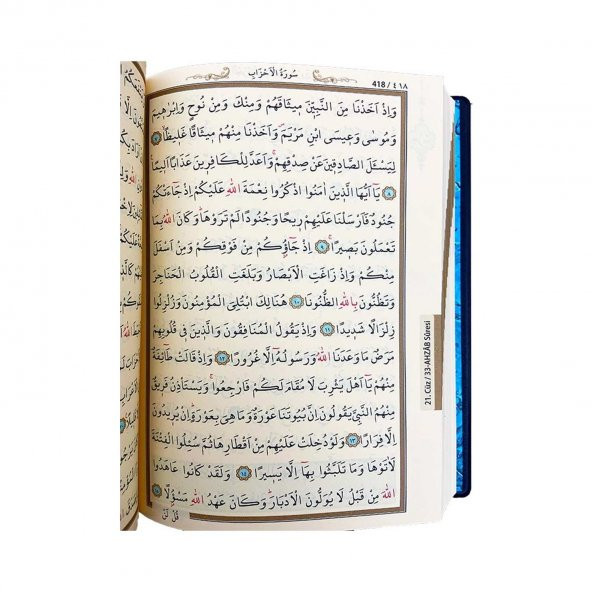 سُورَةُ الْاَحْزَابِ
418 / ٤١٨
وَاِذْ اَخَذْنَا مِنَ النَّبِيّٖنَ مٖيثَاقَهُمْ وَمِنْكَ وَمِنْ نُوحٍ وَاِبْرٰهٖيمَ
وَمُوسٰى وَعٖيسَى ابْنِ مَرْيَمَ وَاَخَذْنَا مِنْهُمْ مٖيثَاقًا غَلٖيظًا ﴿٧﴾
لِيَسْـَٔلَ الصَّادِقٖينَ عَنْ صِدْقِهِمْ وَاَعَدَّ لِلْكَافِرٖينَ عَذَابًا اَلٖيمًا
﴿٨﴾ يَٓا اَيُّهَا الَّذٖينَ اٰمَنُوا اذْكُرُوا نِعْمَةَ اللّٰهِ عَلَيْكُمْ اِذْ جَٓاءَتْكُمْ
جُنُودٌ فَاَرْسَلْنَا عَلَيْهِمْ رٖيحًا وَجُنُودًا لَمْ تَرَوْهَا وَكَانَ اللّٰهُ بِمَا
تَعْمَلُونَ بَصٖيرًا ﴿٩﴾ اِذْ جَٓاؤُ۫كُمْ مِنْ فَوْقِكُمْ وَمِنْ اَسْفَلَ
مِنْكُمْ وَاِذْ زَاغَتِ الْاَبْصَارُ وَبَلَغَتِ الْقُلُوبُ الْحَنَاجِرَ
وَتَظُنُّونَ بِاللّٰهِ الظُّنُونَا ﴿١٠﴾ هُنَالِكَ ابْتُلِيَ الْمُؤْمِنُونَ وَزُلْزِلُوا
زِلْزَالًا شَدٖيدًا ﴿١١﴾ وَاِذْ يَقُولُ الْمُنَافِقُونَ وَالَّذٖينَ فٖي قُلُوبِهِمْ
مَرَضٌ مَا وَعَدَنَا اللّٰهُ وَرَسُولُهُٓ اِلَّا غُرُورًا ﴿١٢﴾ وَاِذْ قَالَتْ طَٓائِفَةٌ
مِنْهُمْ يَٓا اَهْلَ يَثْرِبَ لَا مُقَامَ لَكُمْ فَارْجِعُوا وَيَسْتَاْذِنُ فَرٖيقٌ
مِنْهُمُ النَّبِيَّ يَقُولُونَ اِنَّ بُيُوتَنَا عَوْرَةٌ وَمَا هِيَ بِعَوْرَةٍ اِنْ يُرٖيدُونَ
اِلَّا فِرَارًا ﴿١٣﴾ وَلَوْ دُخِلَتْ عَلَيْهِمْ مِنْ اَقْطَارِهَا ثُمَّ سُئِلُوا الْفِتْنَةَ
لَاٰتَوْهَا وَمَا تَلَبَّثُوا بِهَٓا اِلَّا يَسٖيرًا ﴿١٤﴾ وَلَقَدْ كَانُوا عَاهَدُوا
اللّٰهَ مِنْ قَبْلُ لَا يُوَلُّونَ الْاَدْبَارَ وَكَانَ عَهْدُ اللّٰهِ مَسْؤُ۫لًا ﴿١٥﴾
قُلْ لَنْ
21. Cüz / 33-AHZÂB Sûresi